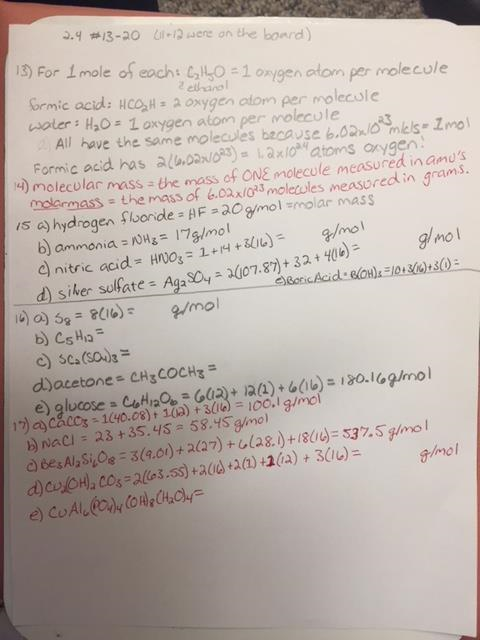 2.4 #13-20 (11+12 were on the board)
13) For 1 mole of each: C₂H₅O = 1 oxygen atom per molecule
ethanol
formic acid: HCO₂H = 2 oxygen atom per molecule
water: H₂O = 1 oxygen atom per molecule
All have the same molecules because 6.02x10²³ mlcls = 1mol
Formic acid has 2(6.02x10²³) = 1.2x10²⁴ atoms oxygen!
14) molecular mass = the mass of ONE molecule measured in amu's
molarmass = the mass of 6.02x10²³ molecules measured in grams.
15 a) hydrogen fluoride = HF = 20g/mol = molar mass
b) ammonia = NH₃ = 17g/mol
c) nitric acid = HNO₃ = 1+14+3(16) = g/mol
d) silver sulfate = Ag₂SO₄ = 2(107.87) + 32 + 4(16) = g/mol
e) Boric Acid = B(OH)₃ = 10+3(16)+3(1) =
16) a) S₈ = 8(16) = g/mol
b) C₅H₁₂ =
c) Sc₂(SO₄)₃ =
d) acetone = CH₃COCH₃ =
e) glucose = C₆H₁₂O₆ = 6(12) + 12(1) + 6(16) = 180.16 g/mol
17) a) CaCO₃ = 1(40.08) + 1(12) + 3(16) = 100.1 g/mol
b) NaCl = 23 + 35.45 = 58.45 g/mol
c) Be₃Al₂Si₆O₁₈ = 3(9.01) + 2(27) + 6(28.1) + 18(16) = 537.5 g/mol
d) Cu₂(OH)₂CO₃ = 2(63.55) + 2(16) + 2(1) + 1(12) + 3(16) = g/mol
e) CuAl₆(PO₄)₄(OH)₈(H₂O)₄ =